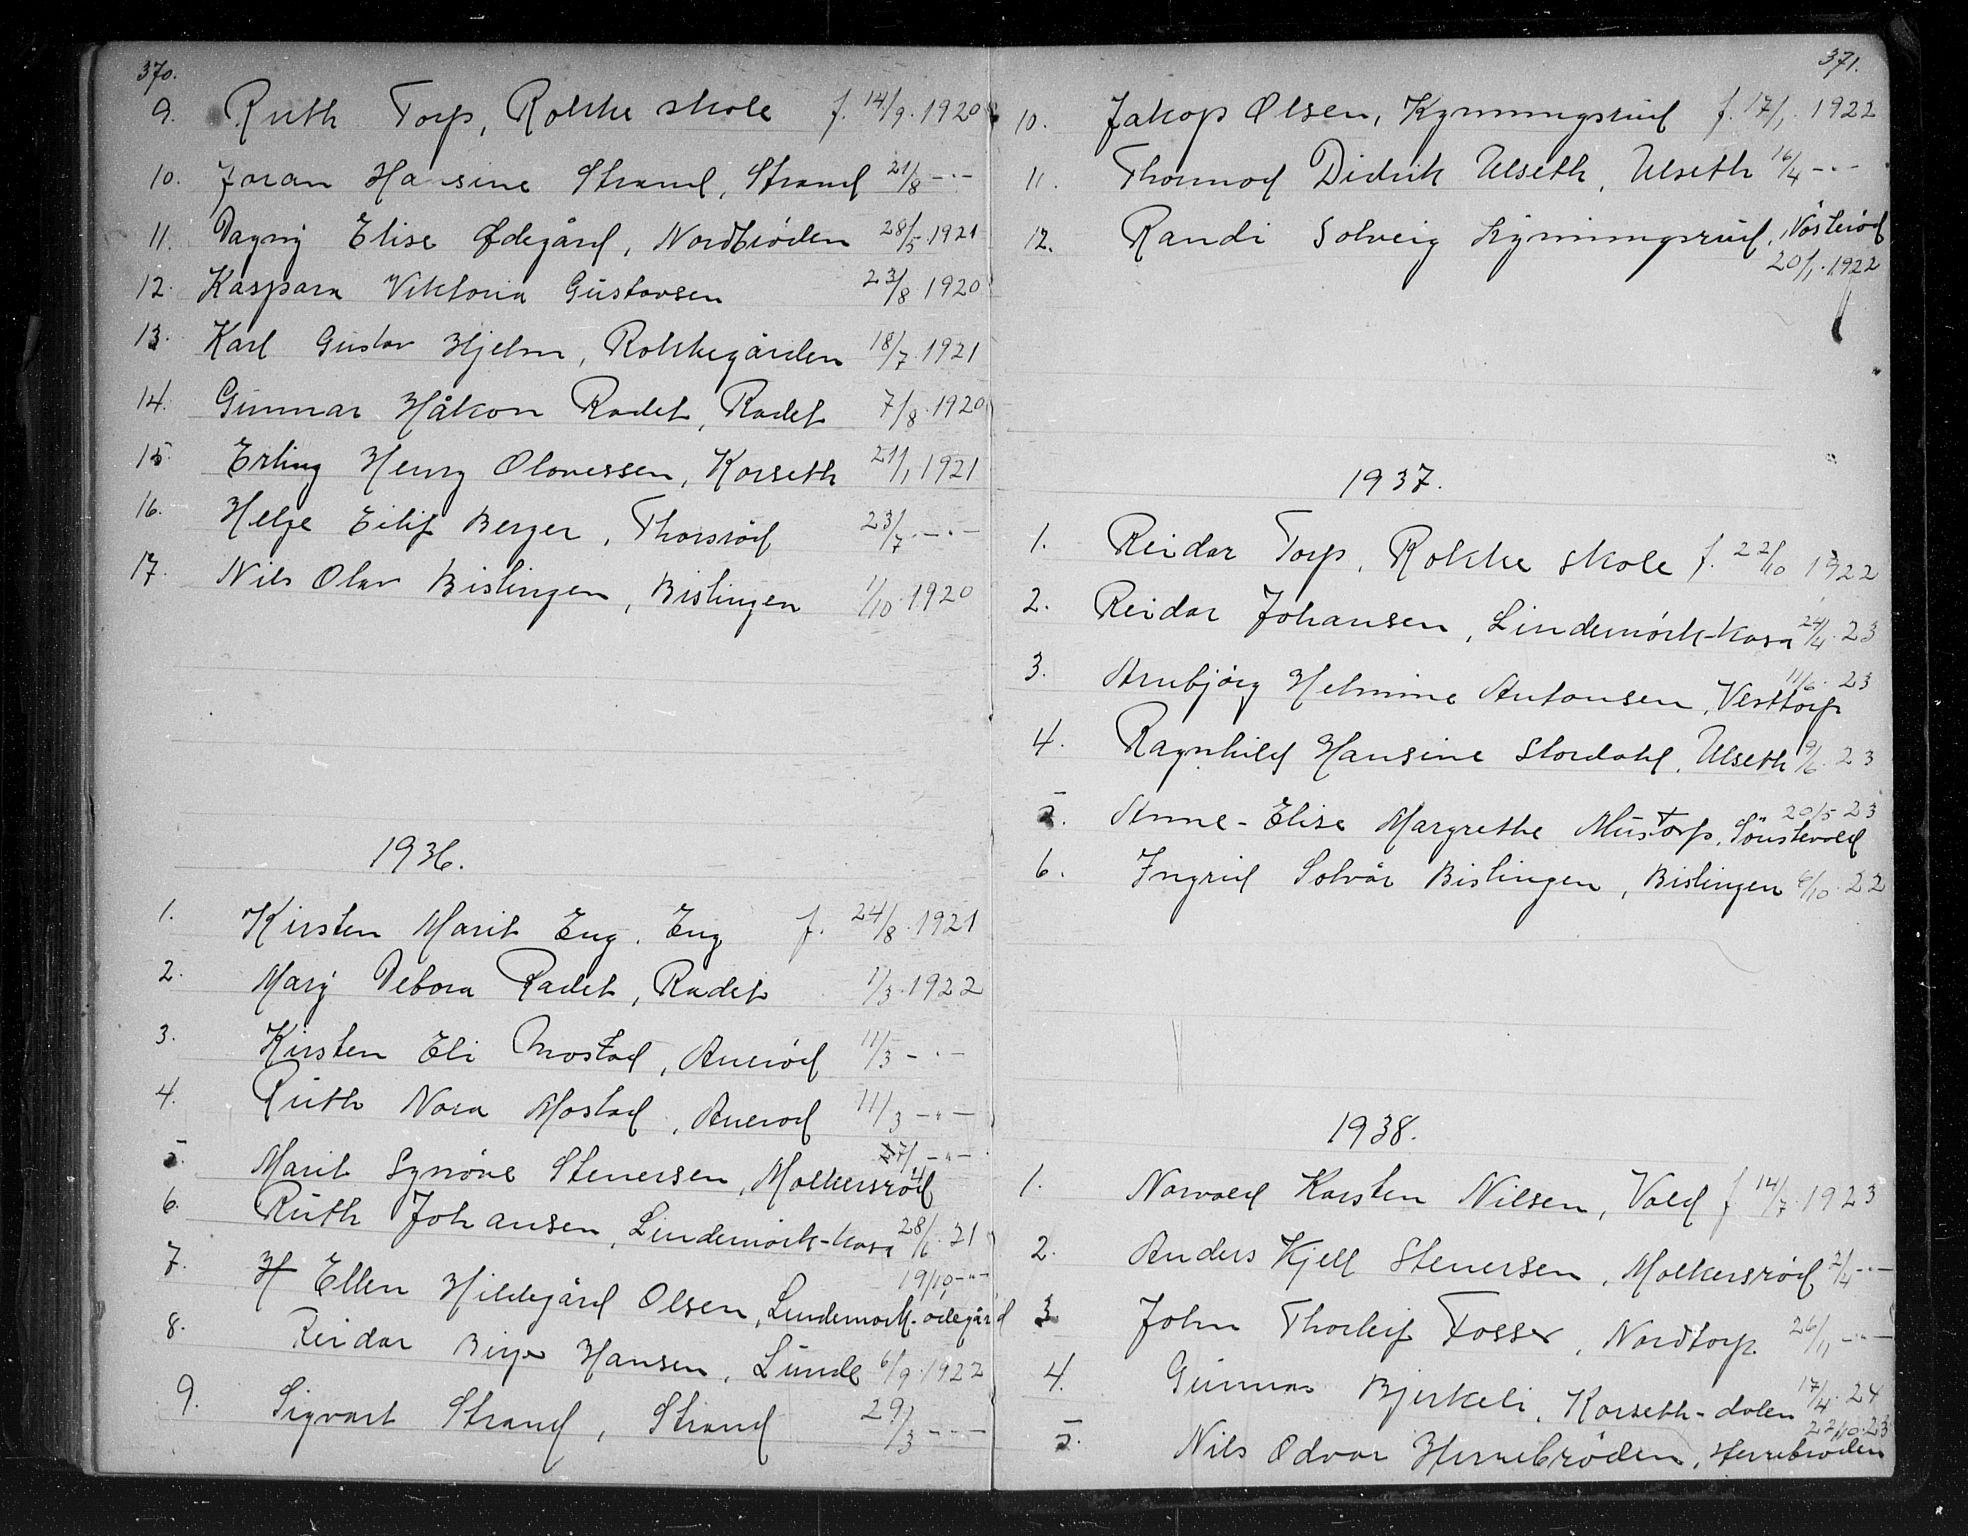 370.
9. Ruth Torp, Rokke skole f. 14/9. 1920
10. Joran Hansine Strand, Strand 21/8 - " -
11. Dagny Elise Ødegård, Nordbrøden 28/5. 1921
12. Kaspara Viktoria Gustavsen 23/8 1920
13. Karl Gustav Hjelm, Rokkegården 18/7. 1921
14. Gunnar Håkon Radet, Radet 7/8. 1920
15. Erling Henry Olavessen, Korseth 21/1 1921
16. Helge Eilif Berger, Thorsrød 23/7. - " -
17. Nils Olav Bislingen, Bislingen 1/10. 1920
1936.
1. Kirsten Marit Eng, Eng f. 24/8. 1921
2. Mary Debora Radet, Radet 1/3. 1922
3. Kirsten Eli Mostad, Auerød 11/3 - " -
4. Ruth Nora Mostad, Auerød 11/3 - " -
5. Marit Synøve Stenersen, Molkersrød 27/4 - " -
6. Ruth Johansen, Lindemørk-kasa 28/6. 21
7. H Ellen Hildegård Olsen, Lindemørk-ødegård 19/10 - " -
8. Reidar Birger Hansen, Lunde 6/9. 1922
9. Sigvart Strand, Strand 29/3 - " -
371.
10. Jakop Olsen, Kynningsrud f. 17/1. 1922
11. Thormod Didrik Ulseth, Ulseth 16/4 - " -
12. Randi Solveig Kynningsrud, Nösterød
20/1. 1922
1937.
1. Reidar Torp, Rokke skole f. 22/10 1922
2. Reidar Johansen, Lindemørk-kasa 24/4. 23
3. Arnbjørg Helmine Antonsen, Vesttorp 11/6. 23
4. Ragnhild Hansine Stordahl, Ulseth 9/6. 23
5. Anne-Elise Margrethe Mustorp, Sønstevold 20/5 23
6. Ingrid Solvår Bislingen, Bislingen 6/10. 22
1938.
1. Norvald Karsten Nilsen, Vold f 14/7. 1923
2. Anders Kjell Stenersen, Molkersrød 2/4 - " -
3. John Thorleif Fosser, Nordtorp 26/11 - " -
4. Gunnar Bjerkeli, Korseth-dalen 17/4. 24
5. Nils Odvar Herrebrøden, Herrebrøden 22/10. 23